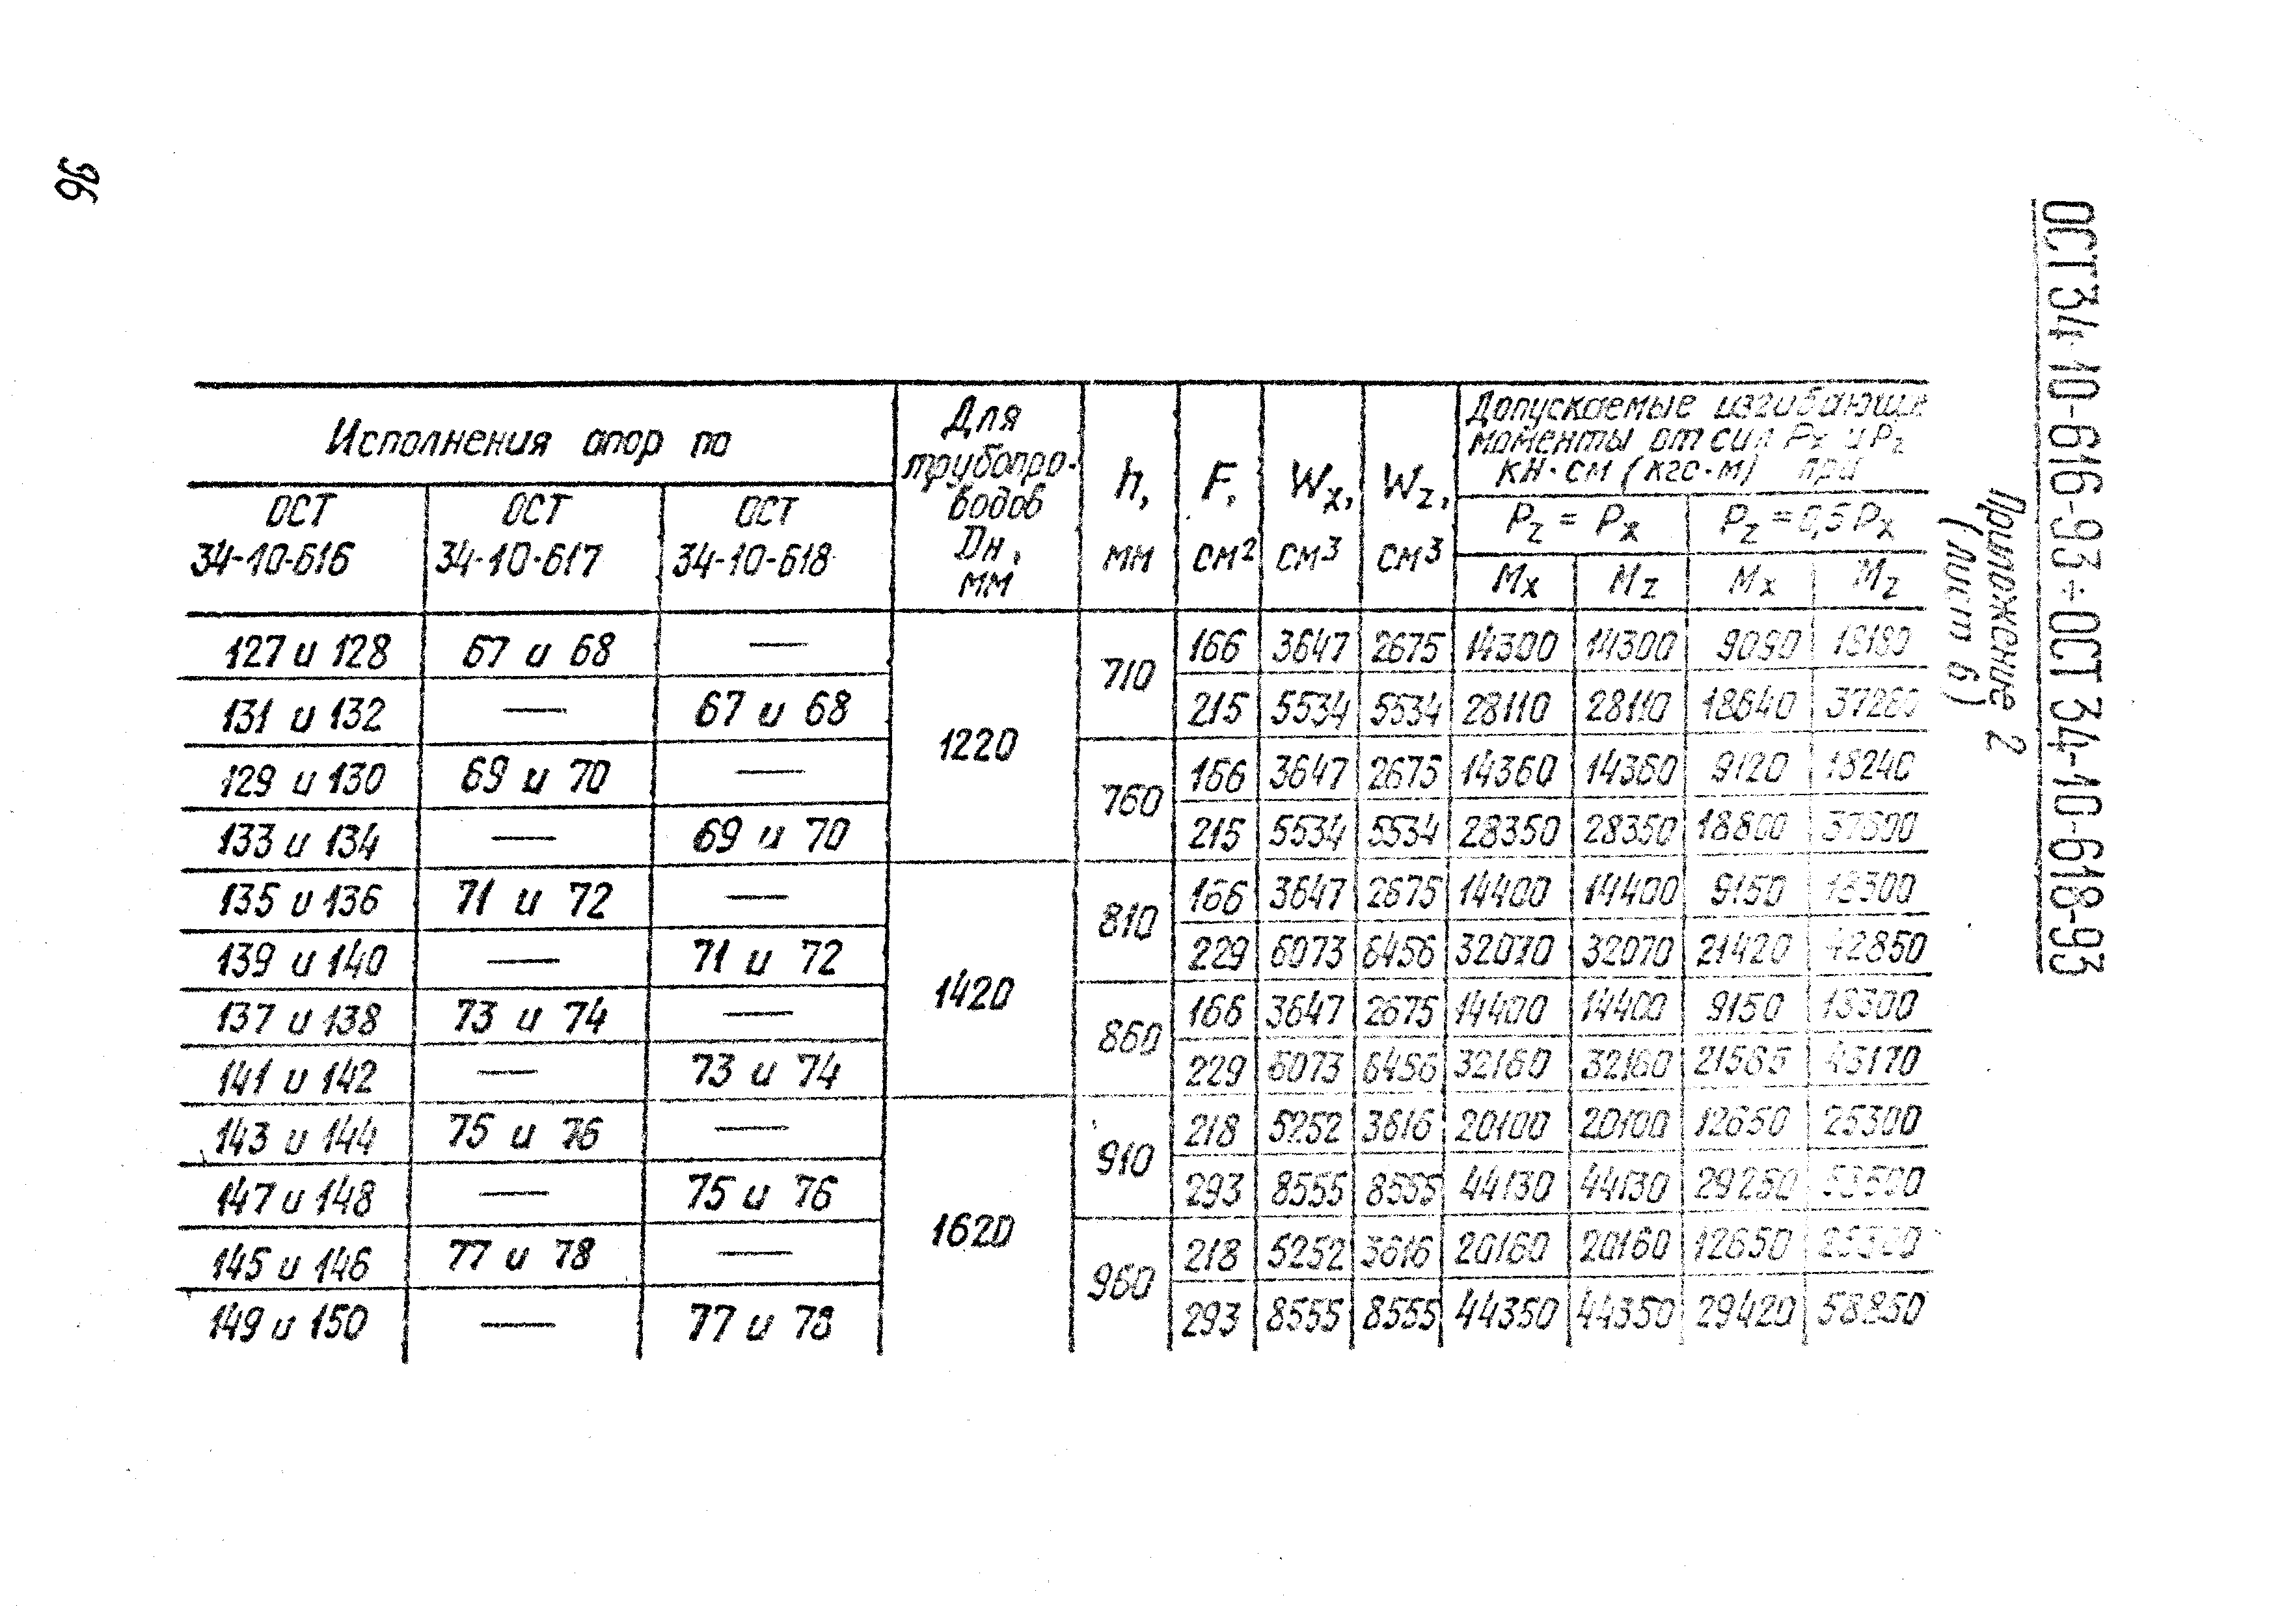 96
ОСТ 34-10-616-93÷ОСТ 34-10-618-93
Приложение 2
(лист 6)
Исполнения опор по
ОСТ 34-10-616
ОСТ 34-10-617
ОСТ 34-10-618
Для трубопро-
водов
Dн,
мм
h, мм
F, см²
Wx, см³
Wz, см³
Допускаемые изгибающие
моменты от сил Px и Pz
кН·см (кгс·м) при
Pz = Px
Pz = 0,5 Px
Mx Mz Mx Mz
127 и 128 67 и 68 — 1220 710 166 3647 2675 14300 14300 9090 18180
131 и 132 — 67 и 68 215 5534 5534 28110 28110 18640 37280
129 и 130 69 и 70 — 760 166 3647 2675 14360 14360 9120 18240
133 и 134 — 69 и 70 215 5534 5534 28350 28350 18800 37600
135 и 136 71 и 72 — 1420 810 166 3647 2675 14400 14400 9150 18300
139 и 140 — 71 и 72 229 6073 6456 32070 32070 21420 42850
137 и 138 73 и 74 — 860 166 3647 2675 14400 14400 9150 18300
141 и 142 — 73 и 74 229 6073 6456 32160 32160 21585 43170
143 и 144 75 и 76 — 1620 910 218 5252 3616 20100 20100 12650 25300
147 и 148 — 75 и 76 293 8555 8555 44130 44130 29250
145 и 146 77 и 78 — 960 218 5252 3616 20160 20160 12650 25300
149 и 150 — 77 и 78 293 8555 8555 44350 44350 29420 58850